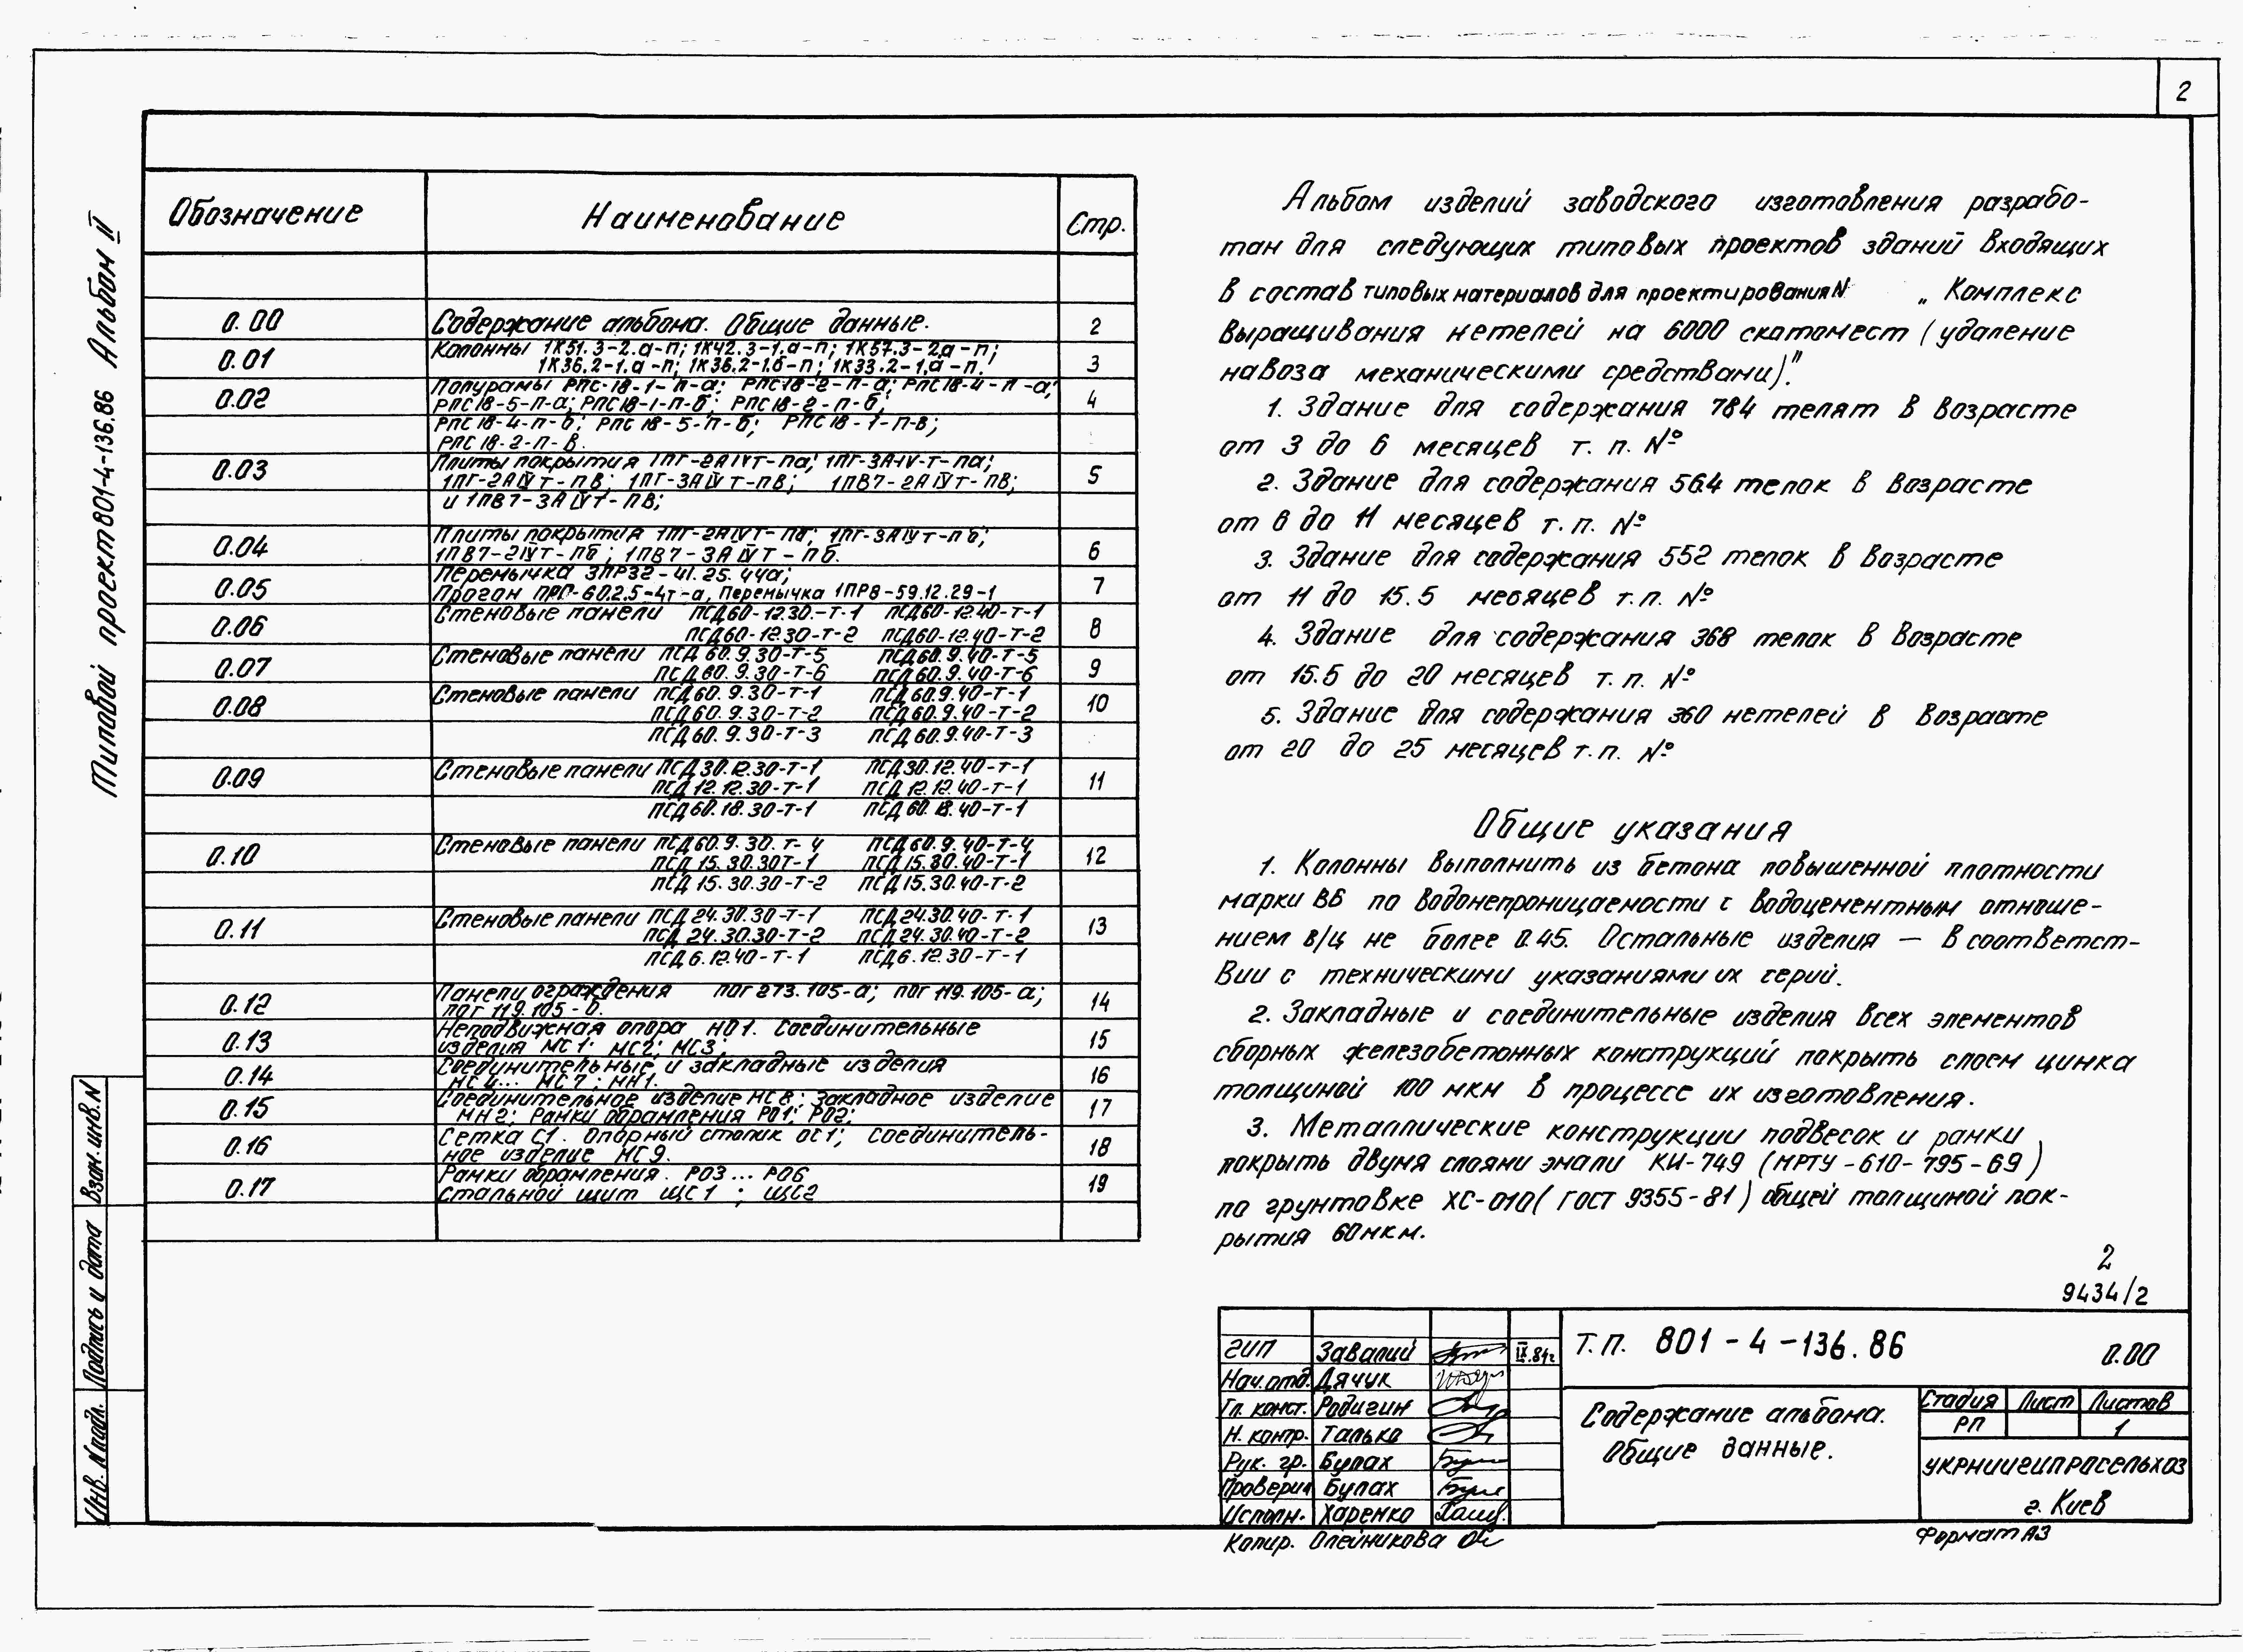 2
Типовой проект 801-4-136.86 Альбом II
Обозначение Наименование Стр.
0.00 Содержание альбома. Общие данные. 2
0.01 Колонны 1К51.3-2.а-п; 1К42.3-1.а-п; 1К57.3-2а-п; 3
1К36.2-1.а-п; 1К36.2-1.б-п; 1К33.2-1.а-п.
0.02 Полурамы РПС-18-1-п-а; РПС18-2-п-а; РПС18-4-п-а; 4
РПС18-5-п-а; РПС18-1-п-б; РПС18-2-п-б;
РПС18-4-п-б; РПС18-5-п-б; РПС18-1-п-в;
РПС18-2-п-в.
0.03 Плиты покрытия 1ПГ-2АIVт-па; 1ПГ-3АIV-т-па; 5
1ПГ-2АIVт-пв; 1ПГ-3АIVт-пв; 1ПВ7-2АIVт-пв;
и 1ПВ7-3АIVт-пв;
0.04 Плиты покрытия 1ПГ-2АIVт-пб; 1ПГ-3АIVт-пб; 6
1ПВ7-2IVт-пб; 1ПВ7-3АIVт-пб.
0.05 Перемычка 3ПР32-41.25.44а; 7
Прогон ПРП-60.2.5-4т-а, Перемычка 1ПР8-59.12.29-1
0.06 Стеновые панели ПСД60-12.30-т-1 ПСД60-12.40-т-1 8
ПСД60-12.30-т-2 ПСД60-12.40-т-2
0.07 Стеновые панели ПСД60.9.30-т-5 ПСД60.9.40-т-5 9
ПСД60.9.30-т-6 ПСД60.9.40-т-6
0.08 Стеновые панели ПСД60.9.30-т-1 ПСД60.9.40-т-1 10
ПСД60.9.30-т-2 ПСД60.9.40-т-2
ПСД60.9.30-т-3 ПСД60.9.40-т-3
0.09 Стеновые панели ПСД30.12.30-т-1 ПСД30.12.40-т-1 11
ПСД12.12.30-т-1 ПСД12.12.40-т-1
ПСД60.18.30-т-1 ПСД60.18.40-т-1
0.10 Стеновые панели ПСД60.9.30.т-4 ПСД60.9.40-т-4 12
ПСД15.30.30т-1 ПСД15.30.40-т-1
ПСД15.30.30-т-2 ПСД15.30.40-т-2
0.11 Стеновые панели ПСД24.30.30-т-1 ПСД24.30.40-т-1 13
ПСД24.30.30-т-2 ПСД24.30.40-т-2
ПСД6.12.40-т-1 ПСД6.12.30-т-1
0.12 Панели ограждения ПОГ 273.105-а; ПОГ 119.105-а; 14
ПОГ 119.105-б.
0.13 Неподвижная опора НО1. Соединительные 15
изделия МС1; МС2; МС3;
0.14 Соединительные и закладные изделия 16
МС4... МС7; МН1.
0.15 Соединительное изделие МС8; Закладное изделие 17
МН2; Рамки обрамления РО1; РО2;
0.16 Сетка С1. Опорный столик ОС1; соединитель- 18
ное изделие МС9.
0.17 Рамки обрамления. РО3...РО6 19
Стальной щит ЩС1; ЩС2
Альбом изделий заводского изготовления разрабо-
тан для следующих типовых проектов зданий входящих
в состав типовых материалов для проектирования N „Комплекс
выращивания нетелей на 6000 скотомест (удаление
навоза механическими средствами)".
1. Здание для содержания 784 телят в возрасте
от 3 до 6 месяцев т.п. №
2. Здание для содержания 564 телок в возрасте
от 6 до 11 месяцев т.п. №
3. Здание для содержания 552 телок в возрасте
от 11 до 15.5 месяцев т.п. №
4. Здание для содержания 368 телок в возрасте
от 15.5 до 20 месяцев т.п. №
5. Здание для содержания 360 нетелей в возрасте
от 20 до 25 месяцев т.п. №
Общие указания
1. Колонны выполнить из бетона повышенной плотности
марки В6 по водонепроницаемости с водоцементным отноше-
нием в/ц не более 0.45. Остальные изделия — в соответст-
вии с техническими указаниями их серий.
2. Закладные и соединительные изделия всех элементов
сборных железобетонных конструкций покрыть слоем цинка
толщиной 100 мкм в процессе их изготовления.
3. Металлические конструкции подвесок и рамки
покрыть двумя слоями эмали КИ-749 (МРТУ-610-795-69)
по грунтовке ХС-010 (ГОСТ 9355-81) общей толщиной пок-
рытия 60мкм.
2
9434/2
ГИП Завалий IX.84г
Нач.отд. Дячук
Гл. конст. Родигин
Н. контр. Талько
Рук. гр. Булах
Проверил Булах
Исполн. Харенко
Т.П. 801-4-136.86 0.00
Содержание альбома.
Общие данные.
Стадия Лист Листов
РП 1
УКРНИИГИПРОСЕЛЬХОЗ
г. Киев
Копир. Олейникова
Формат А3
Взам.инв.N
Подпись и дата
Инв. N подл.